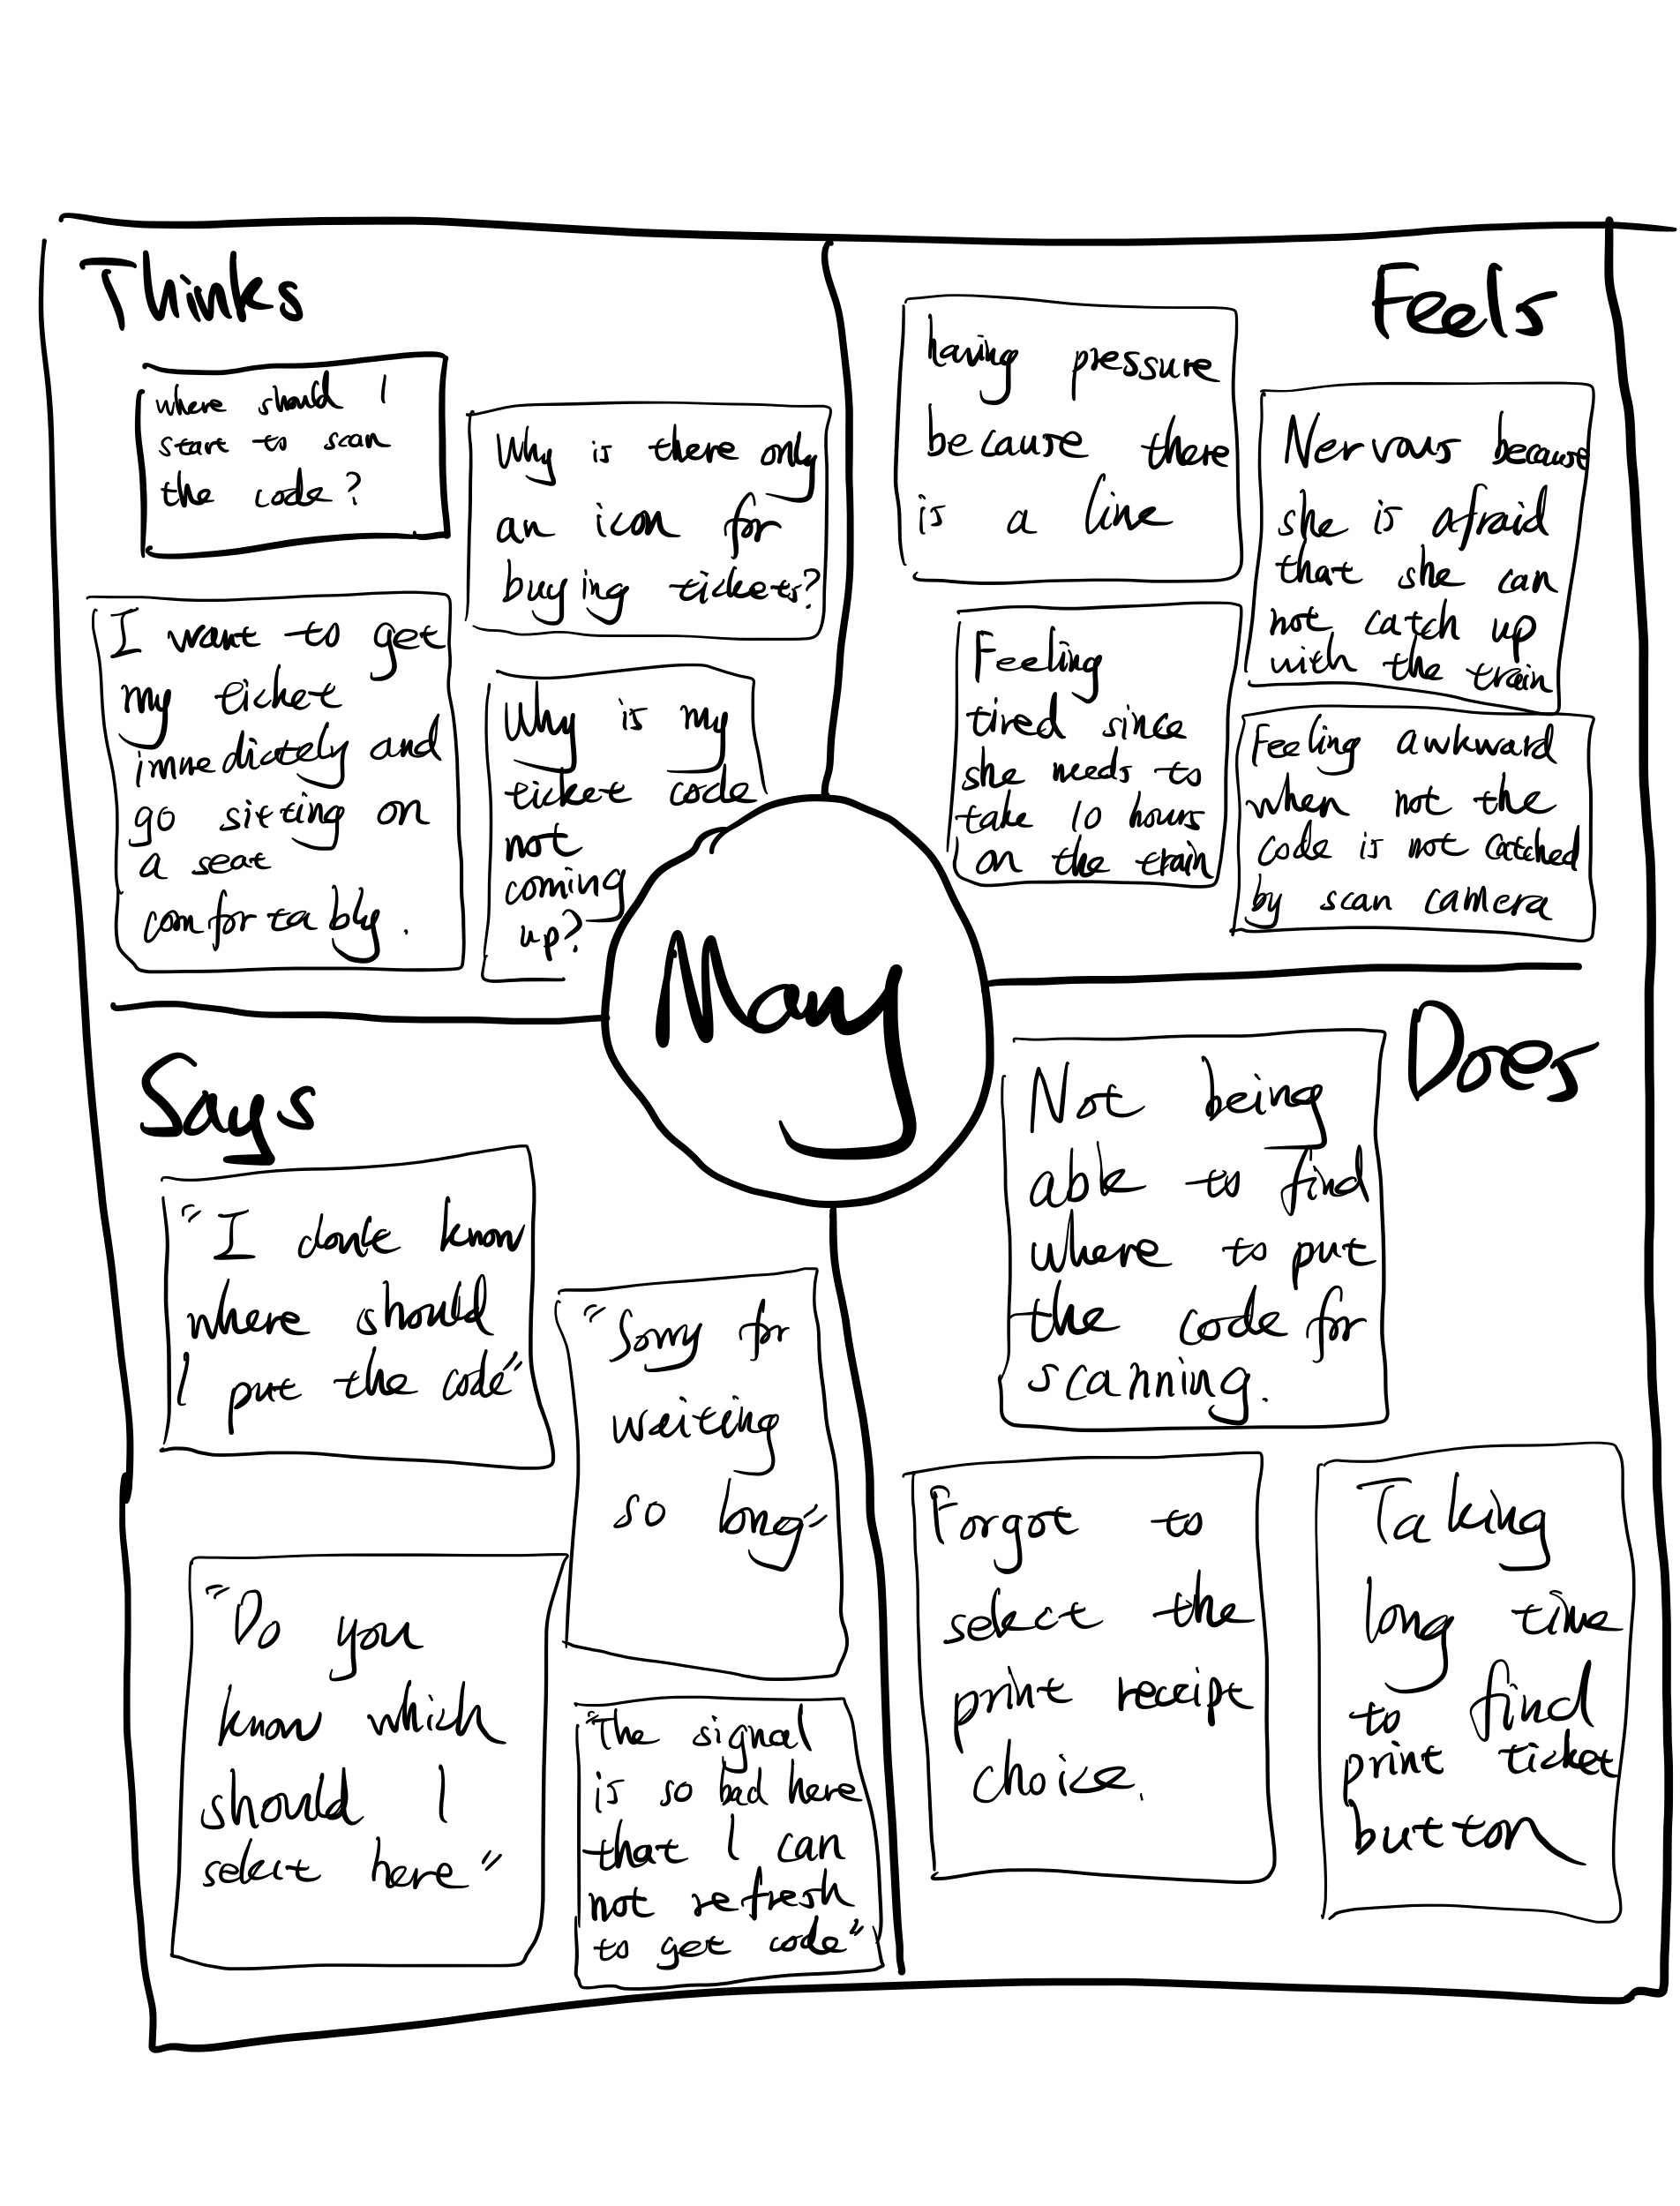 Thinks
where should I
start to scan
the code?
Why is there only
an icon for
buying tickets?
I want to get
my ticket
immediately and
go sitting on
a seat
comfortably.
Why is my
ticket code
not
coming
up?
Feels
having pressure
because there
is a line
Nervous because
she is afraid
that she can
not catch up
with the train
Feeling
tired since
she needs to
take 10 hours
on the train
Feeling awkward
when not the
code is not catched
by scan camera
May
Says
"I don't know
where should
I put the code"
"Sorry for
waiting
so long"
"Do you
know which
should I
select here"
"The signal
is so bad here
that I can
not refresh
to get code"
Does
Not being
able to find
where to put
the code for
scanning.
Forgot to
select the
print receipt
choice.
Taking
long time
to find
print ticket
button